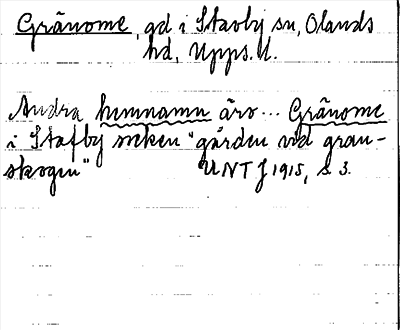 Gränome, gd i Stavby sn, Olands
hd, Upps. l.
Andra hemnamn äro... Gränome
i Stafby socken "gården vid gran-
skogen" UNT J 1915, s. 3.